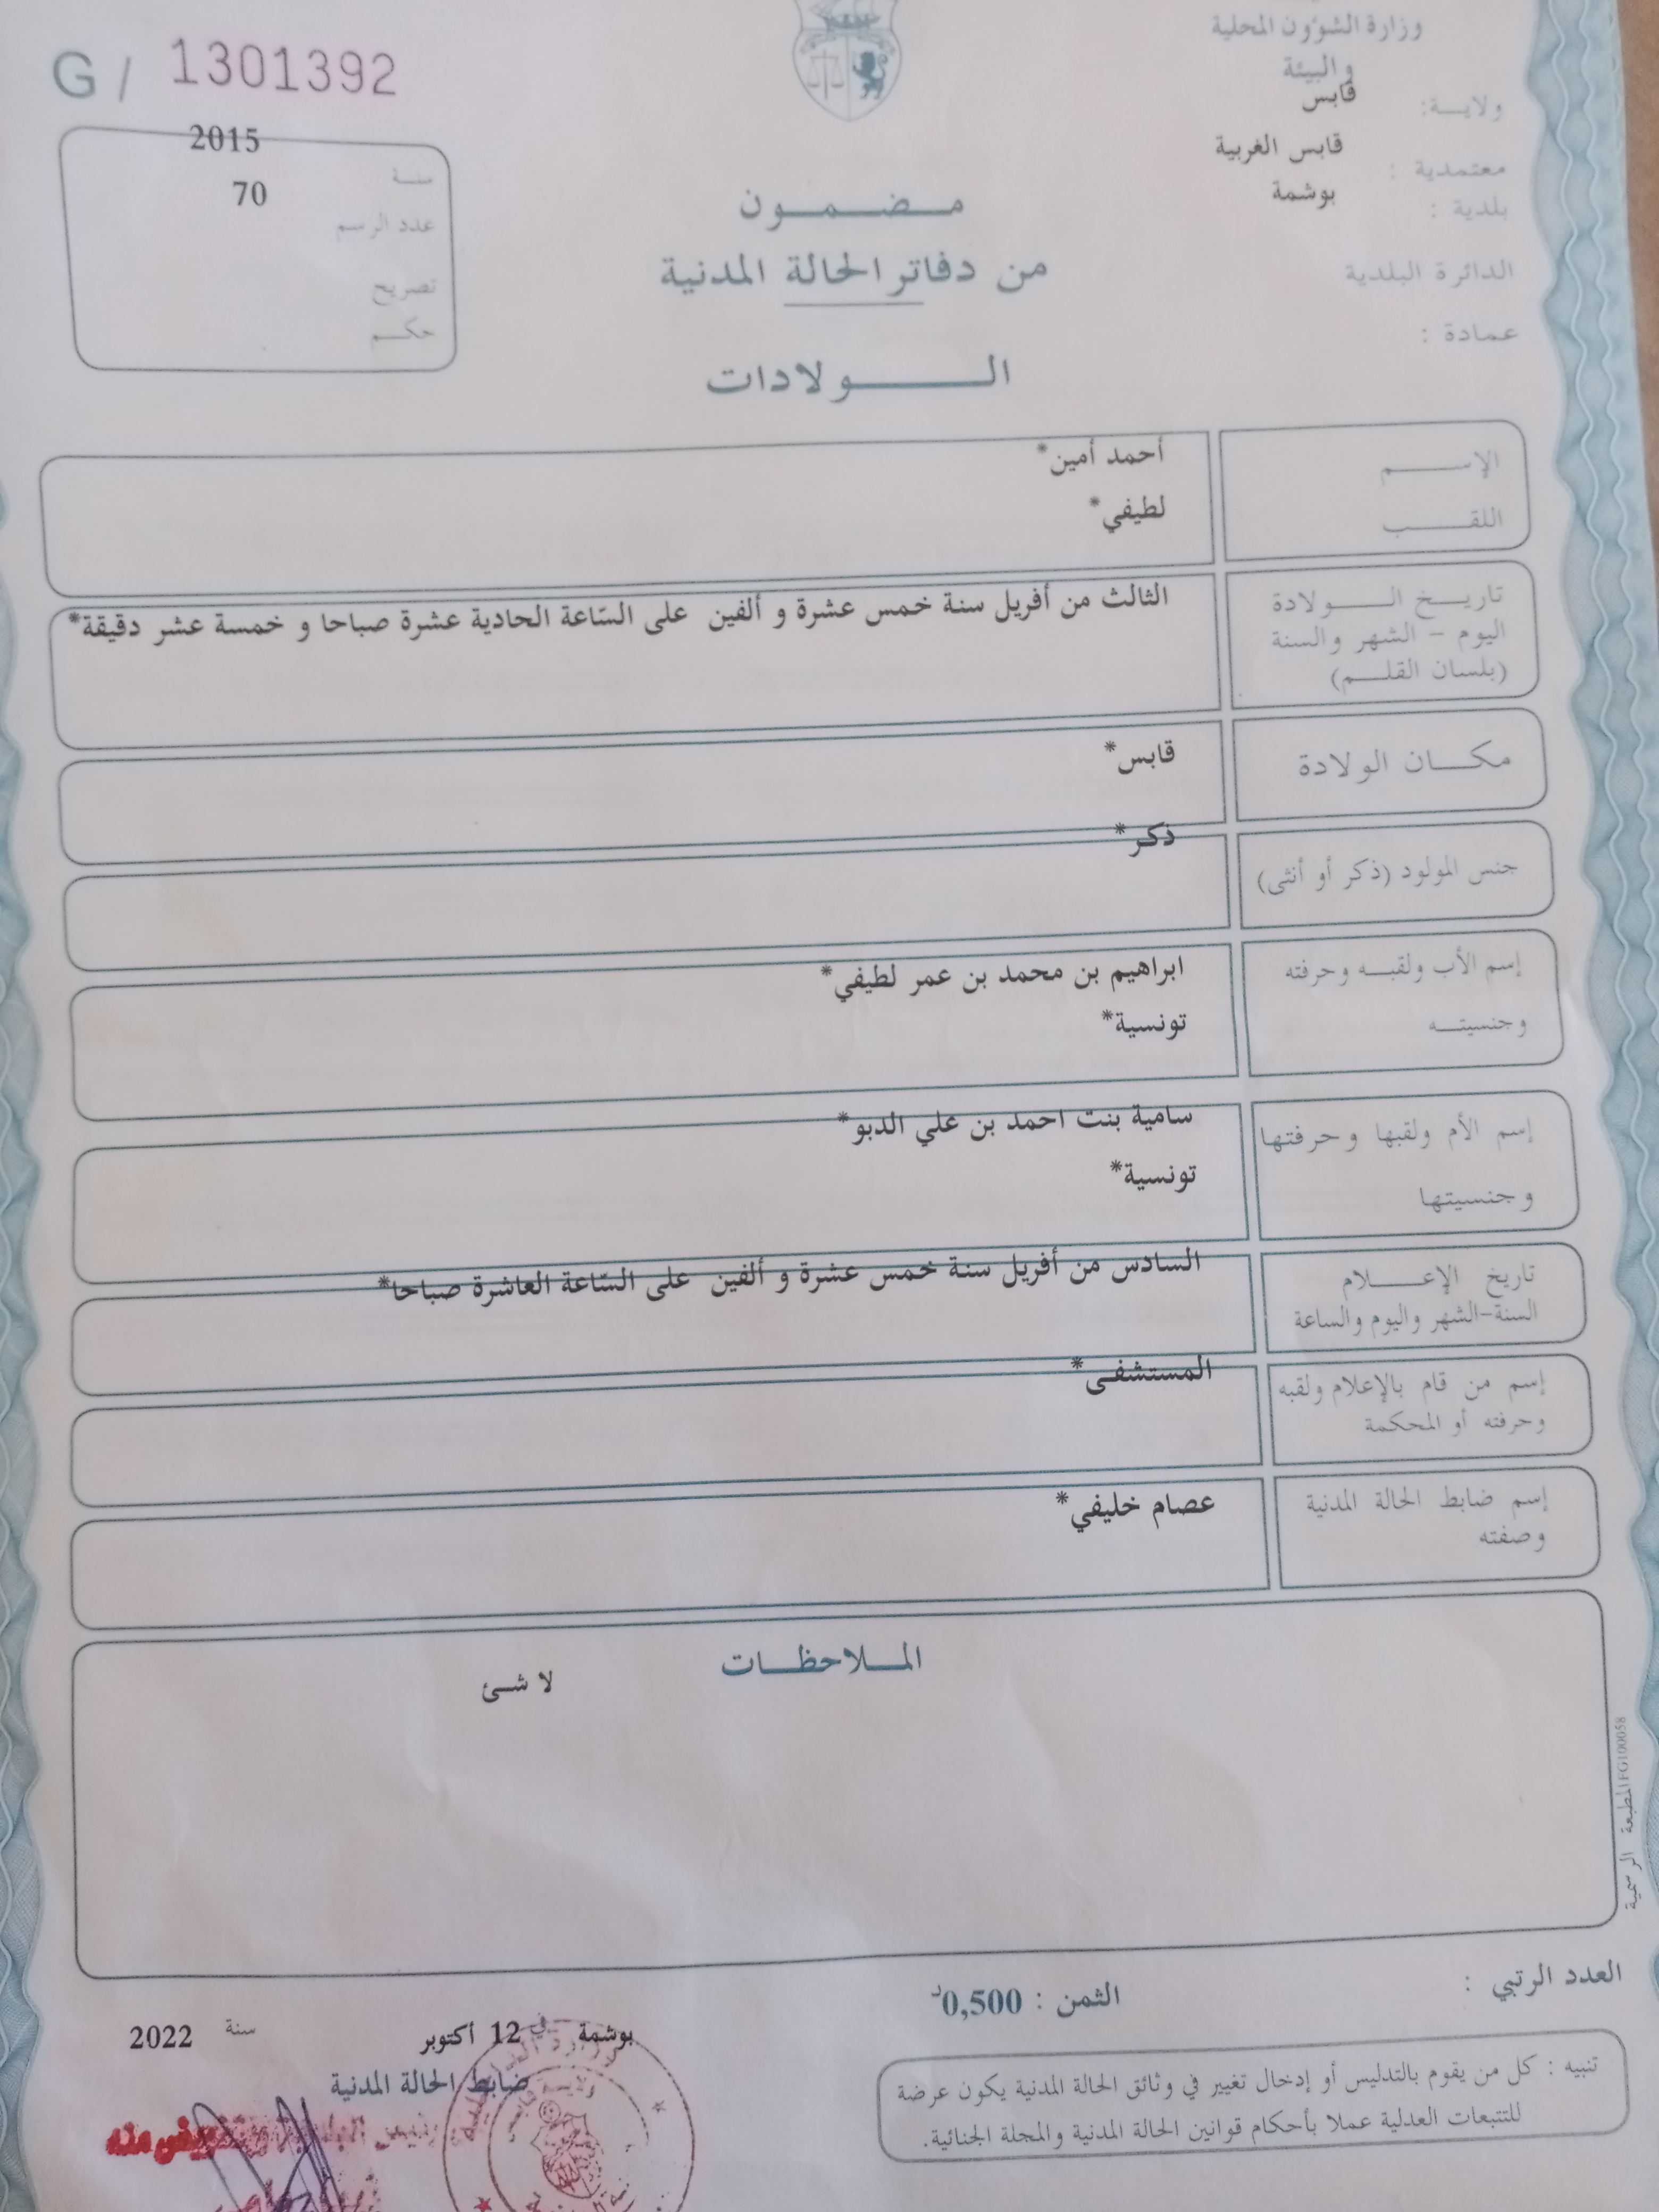 وزارة الشؤون المحلية
والبيئة
ولايـــة: قابس
معتمدية : قابس الغربية
بلدية : بوشمة
الدائرة البلدية
عمادة :
G / 1301392
سنـــة 2015
عدد الرسم 70
تصريح
حكـــم
مـــضـــمـــون
من دفاتر الحالة المدنية
الـــــولادات
الإســـــم أحمد أمين*
اللقـــــب لطيفي*
تاريـــخ الـــــولادة
اليوم - الشهر والسنة
(بلسان القلـــم)
الثالث من أفريل سنة خمس عشرة و ألفين على السّاعة الحادية عشرة صباحا و خمسة عشر دقيقة*
مكـــان الولادة قابس*
جنس المولود (ذكر أو أنثى) ذكر*
إسم الأب ولقبـــه وحرفته ابراهيم بن محمد بن عمر لطيفي*
وجنسيتـــه تونسية*
إسم الأم ولقبها وحرفتها سامية بنت احمد بن علي الدبو*
وجنسيتها تونسية*
تاريخ الإعـــــلام
السنة-الشهر واليوم والساعة
السادس من أفريل سنة خمس عشرة و ألفين على السّاعة العاشرة صباحا*
إسم من قام بالإعلام ولقبه
وحرفته أو المحكمة
المستشفى*
إسم ضابط الحالة المدنية
وصفته
عصام خليفي*
الملاحظـــات
لا شئ
المطبعة الرسمية FG100058
العدد الرتبي :
الثمن : 0,500د
بوشمة في 12 أكتوبر سنة 2022
ضابط الحالة المدنية
تنبيه : كل من يقوم بالتدليس أو إدخال تغيير في وثائق الحالة المدنية يكون عرضة
للتتبعات العدلية عملا بأحكام قوانين الحالة المدنية والمجلة الجنائية.